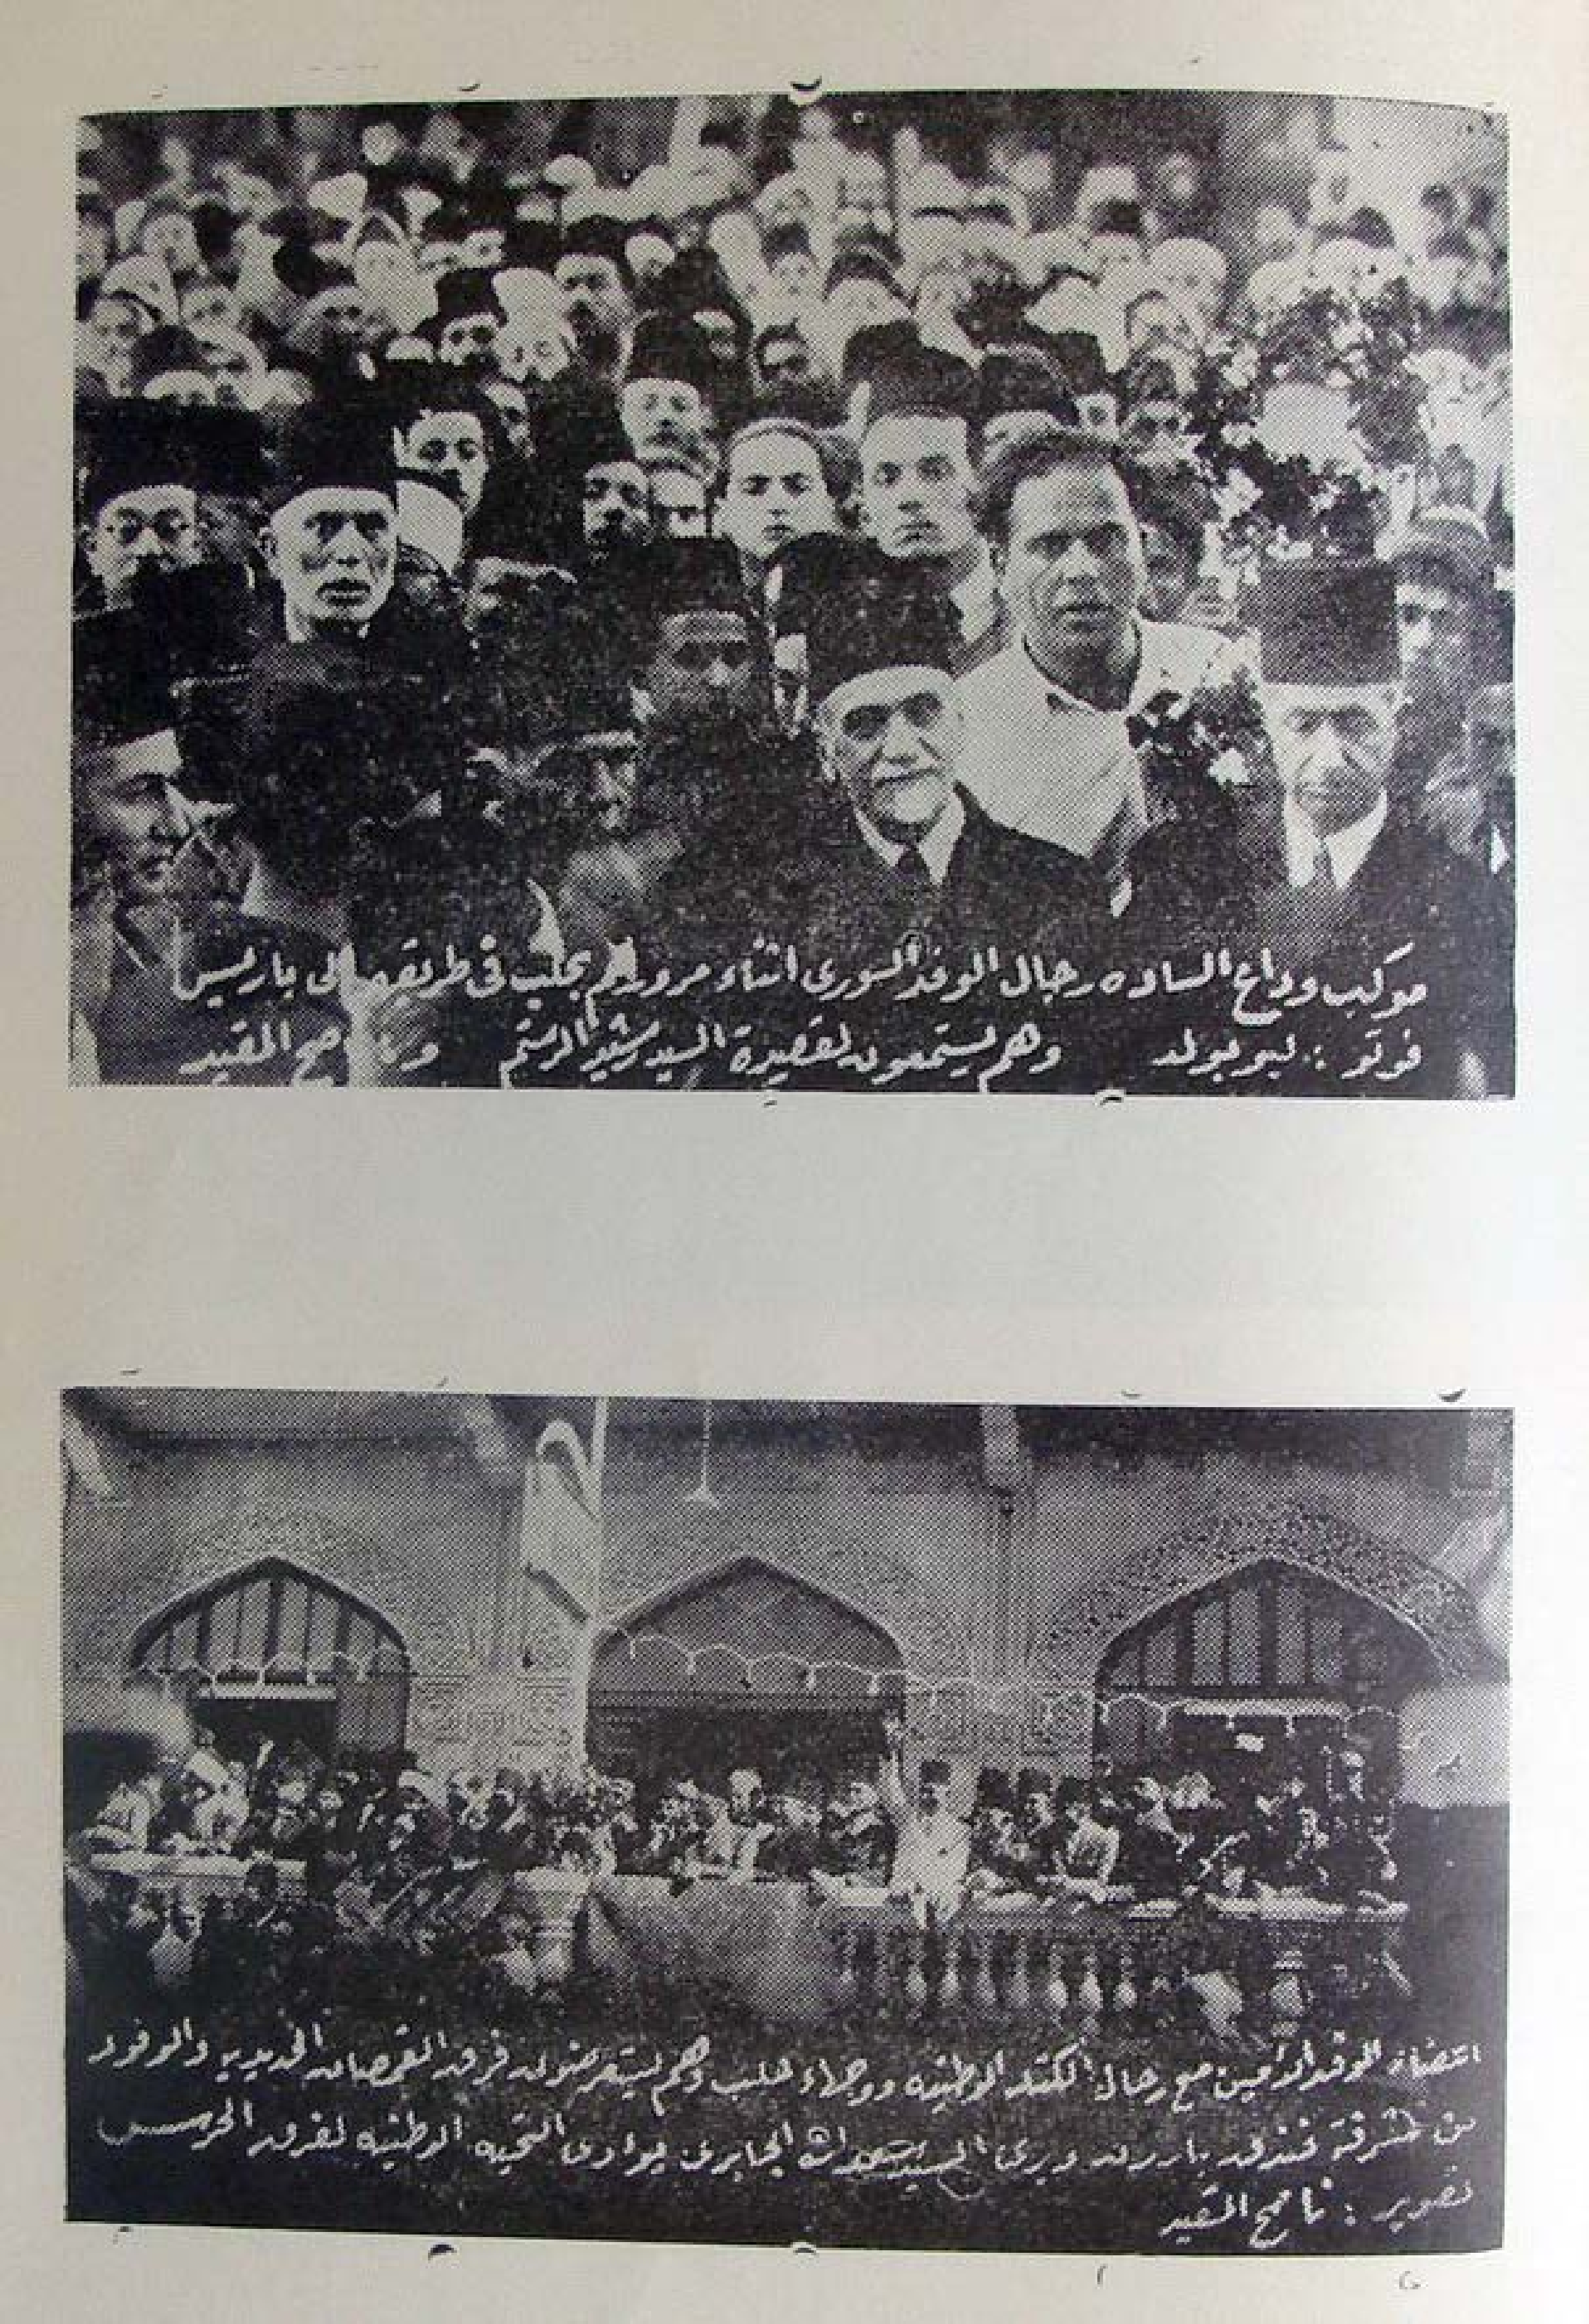 موكب وداع الساده رجال الوفد السوري اثناء مرورهم بحلب في طريقهم الى باريس
فوتو : ليوبولد وهم يستمعون لقصيدة السيد رشيد الرستم وناصح القيد
اعضاء الوفد مع رجال الكتله الوطنيه ووجهاء حلب وهم يستعرضون فرق القمصان الحديديه والوفود
من شرفة فندق بارون ويرى السيد سعد الله الجابري يؤدي التحيه الوطنيه لفرقه الحرس
تصوير : ناصح القيد